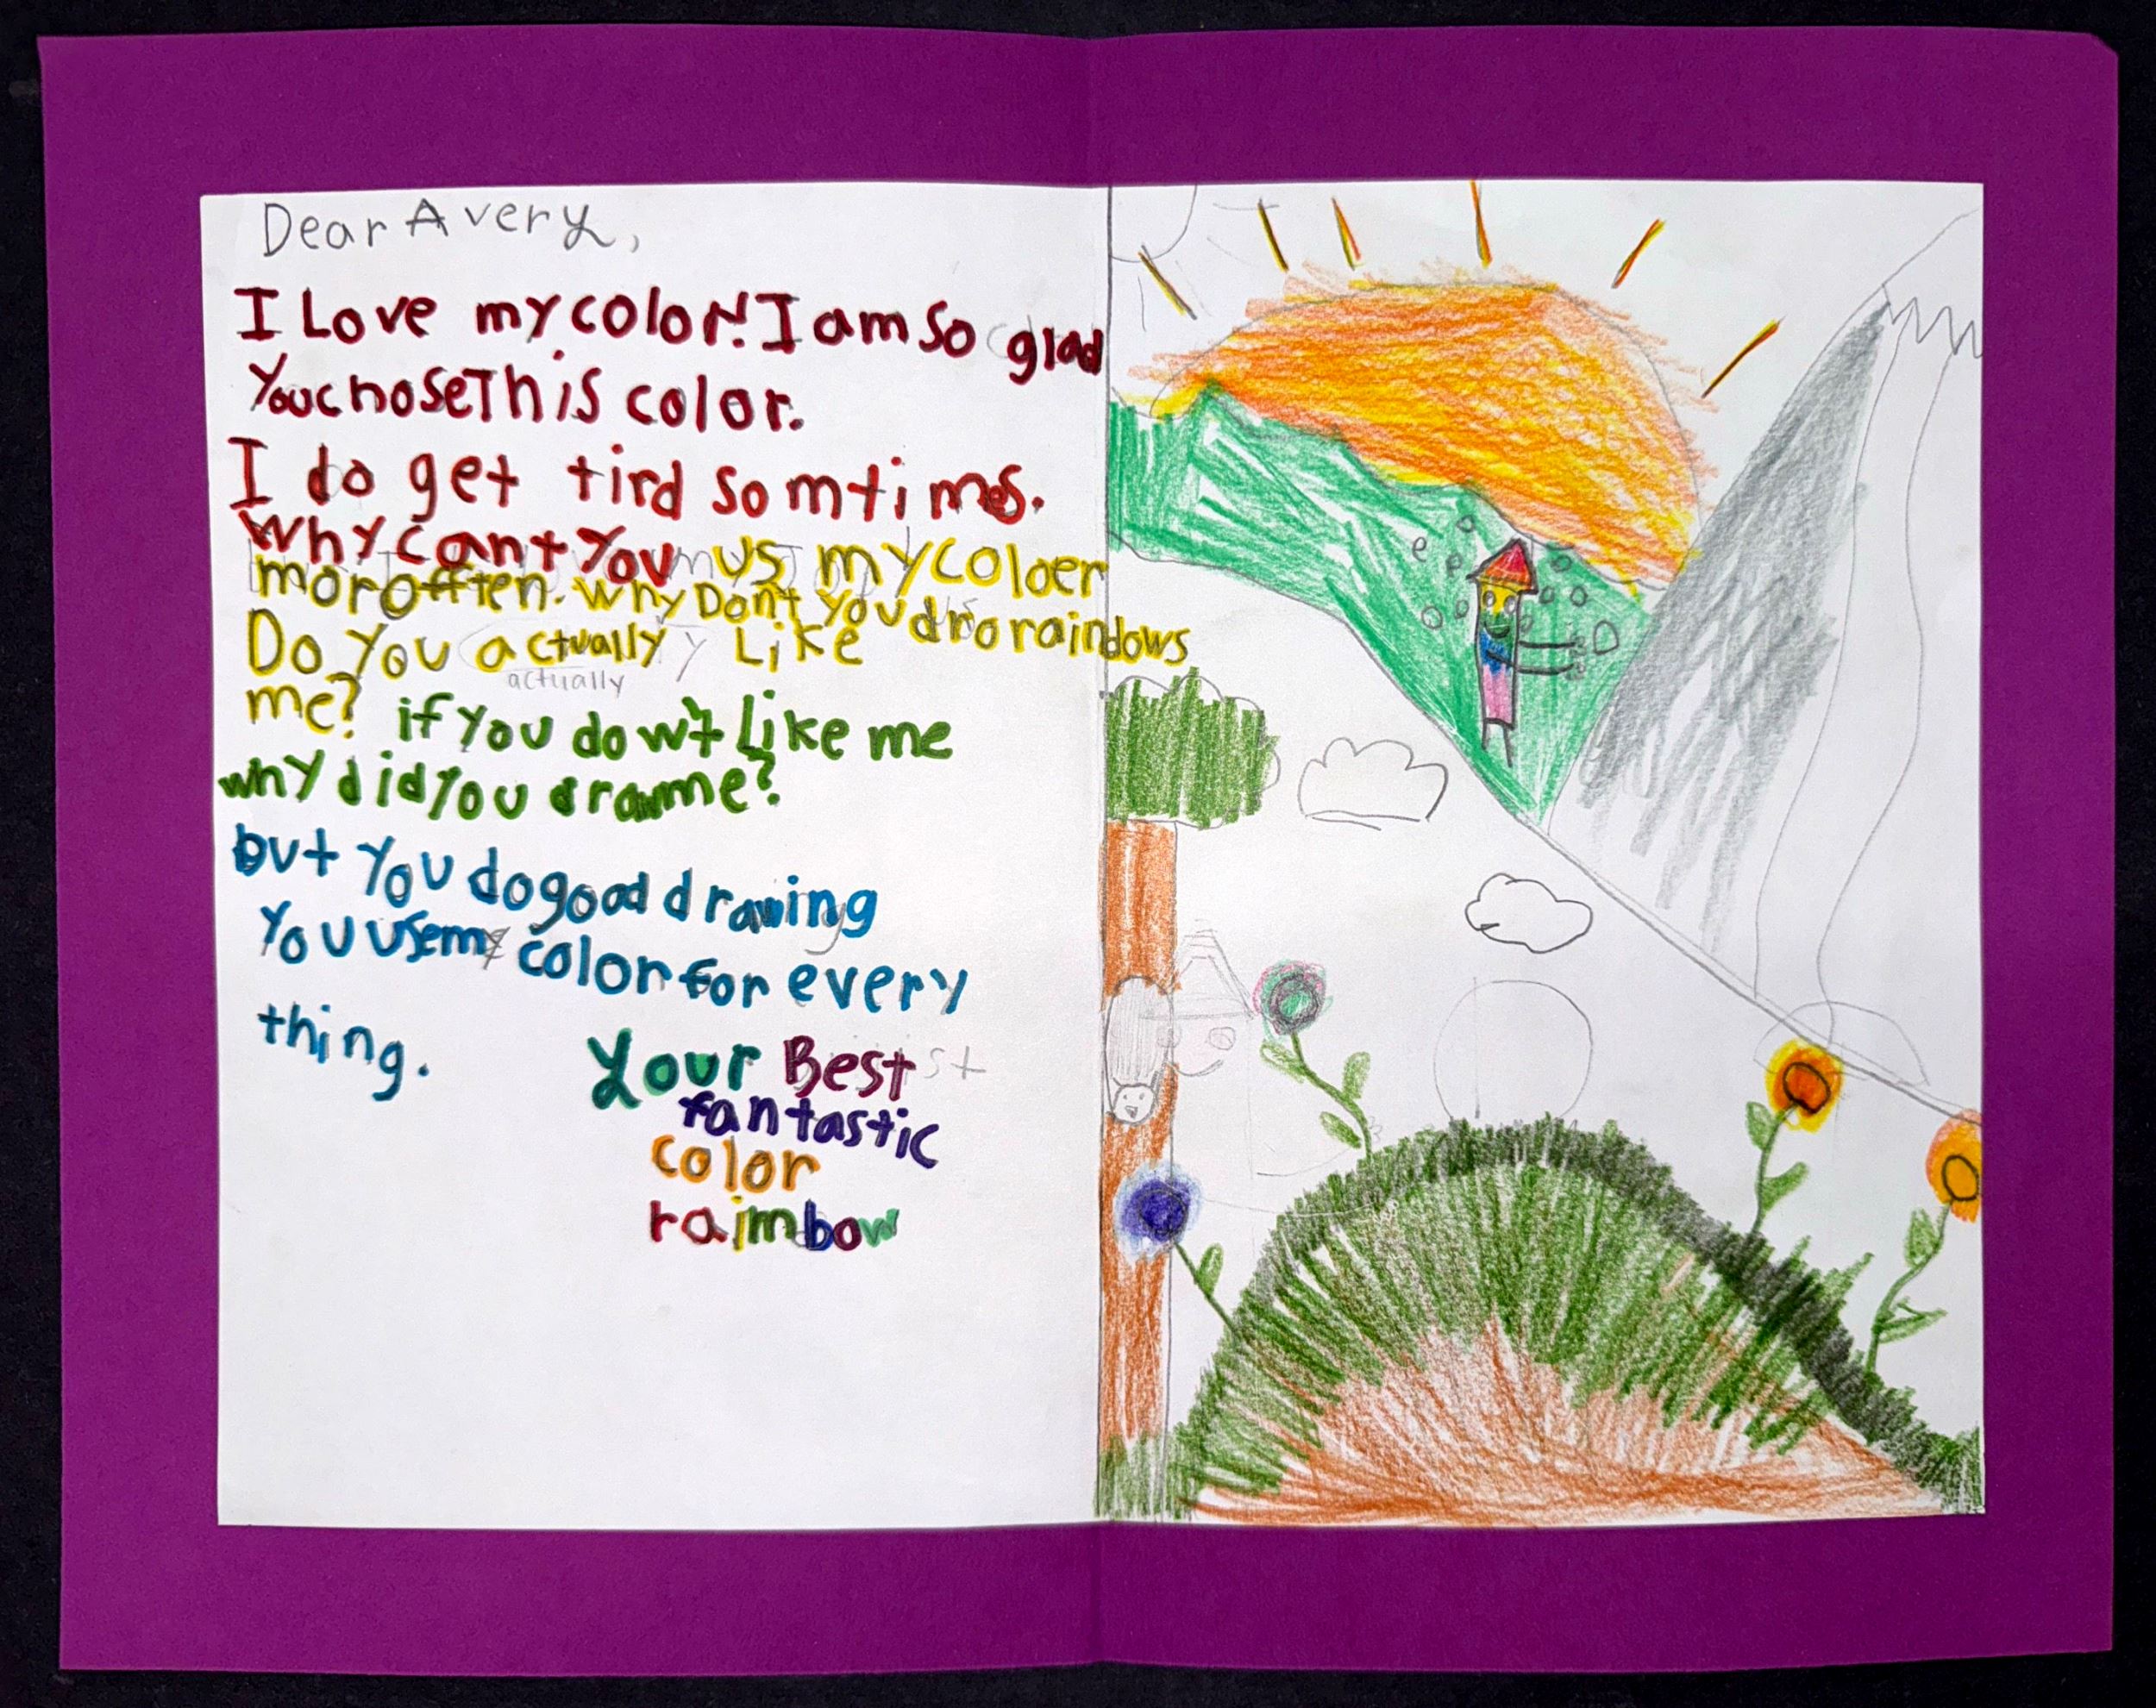 Dear Avery,
I Love my color! I am so glad
You chose This color.
I do get tird somtimes.
Why cant You us my coloer
mor offten. Why Don't you dro raindows
Do You actually Like
actually
me? if you don't Like me
why did you draw me?
but You do good drawing
You use my color for every
thing.
Your Best
fantastic
color
raimbow